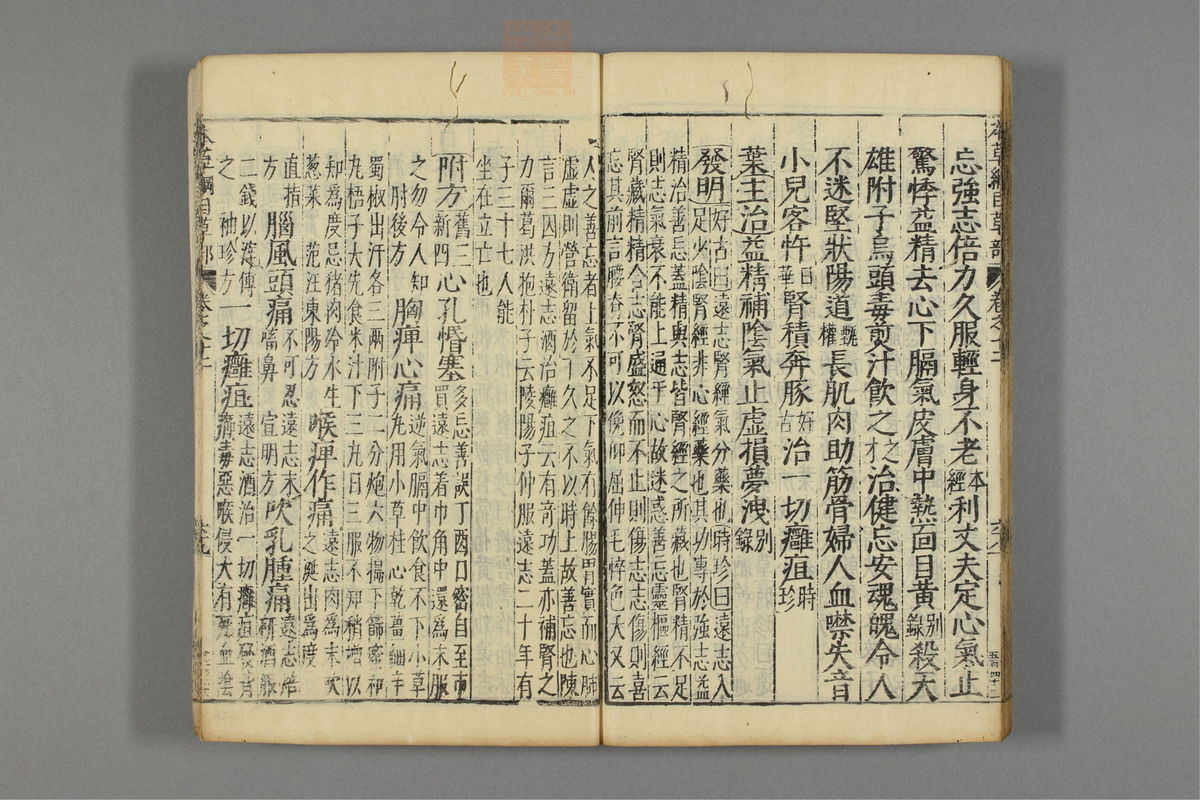 忘強志倍力久服輕身不老本經利丈夫定心氣止
驚悸益精去心下膈氣皮膚中熱面目黃別錄殺天
雄附子烏頭毒煎汁飲之之才治健忘安魂魄令人
不迷堅狀陽道甄權長肌肉助筋骨婦人血噤失音
小兒客忤日華腎積奔豚好古治一切癰疽時珍
葉主治益精補陰氣止虛損夢洩別錄
發明好古曰遠志腎經氣分藥也時珍曰遠志入
足少陰腎經非心經藥也其功專於強志益
精治善忘蓋精與志皆腎經之所藏也腎精不足
則志氣衰不能上通于心故迷惑善忘靈樞經云
腎藏精精合志腎盛怒而不止則傷志志傷則喜
忘其前言腰脊不可以俛仰屈伸毛悴色夭又云
本草綱目草部 卷之十二
人之善忘者上氣不足下氣有餘腸胃實而心肺
虛虛則營衛留於下久之不以時上故善忘也陳
言三因方遠志酒治癰疽云有奇功蓋亦補腎之
力爾葛洪抱朴子云陵陽子仲服遠志二十年有
子三十七人能
坐在立亡也
附方舊三新四心孔惛塞多忘善誤丁酉日密自至市
買遠志着巾角中還為末服
之勿令人知肘後方胸痺心痛逆氣膈中飲食不下小草
丸用小草桂心乾薑細辛
蜀椒出汗各三兩附子二分炮六物搗下篩蜜和
丸梧子大先食米汁下三丸日三服不知稍增以
知為度忌豬肉冷水生
葱菜范汪東陽方喉痺作痛遠志肉為末吹
之涎出為度
直指方腦風頭痛不可忍遠志末
㗜鼻宣明方吹乳腫痛遠志焙
研酒服
二錢以滓傅
之袖珍方一切癰疽遠志酒治一切癰疽發背
癤毒惡候侵大有死血陰
本草綱目草部 卷之十二